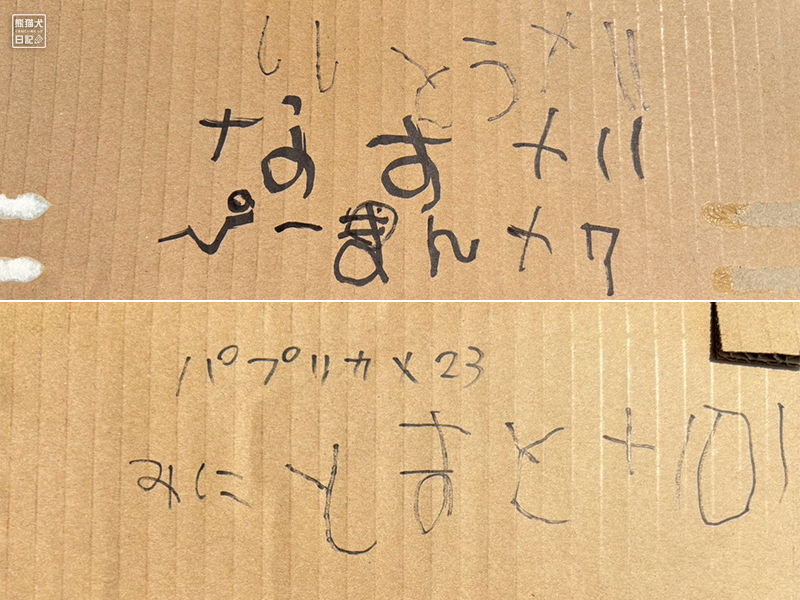 熊猫犬
日記
ししとう×11
なす×11
ぴーまん×7
パプリカ×23
みにとまと×101